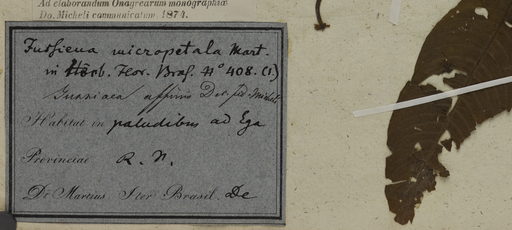 Ad elaborandum Onagrearum monographiam
Do. Micheli communicatum 1874.
Jussieua micropetala Mart.
in Herb. Flor. Bras. N° 408. (1)
Jussiaea affinis DC. fid Micheli
Habitat in paludibus ad Ega
Provinciae R. N.
Dr Martius. Iter Brasil. De